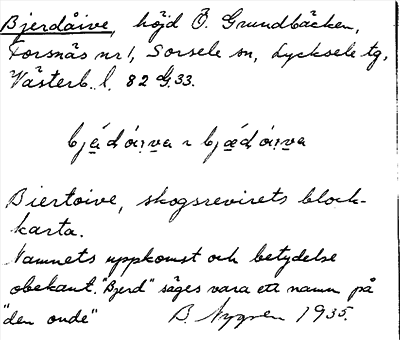 Bjerdåive, höjd Ö. Grundbäcken,
Forsnäs nr 1, Sorsele sn, Lycksele tg,
Västerb. l. 82 G.33.
Biertoive, skogsrevirets block-
karta.
Namnets uppkomst och betydelse
obekant. "Bjerd" säges vara ett namn på
"den onde" B. Nygren 1935.